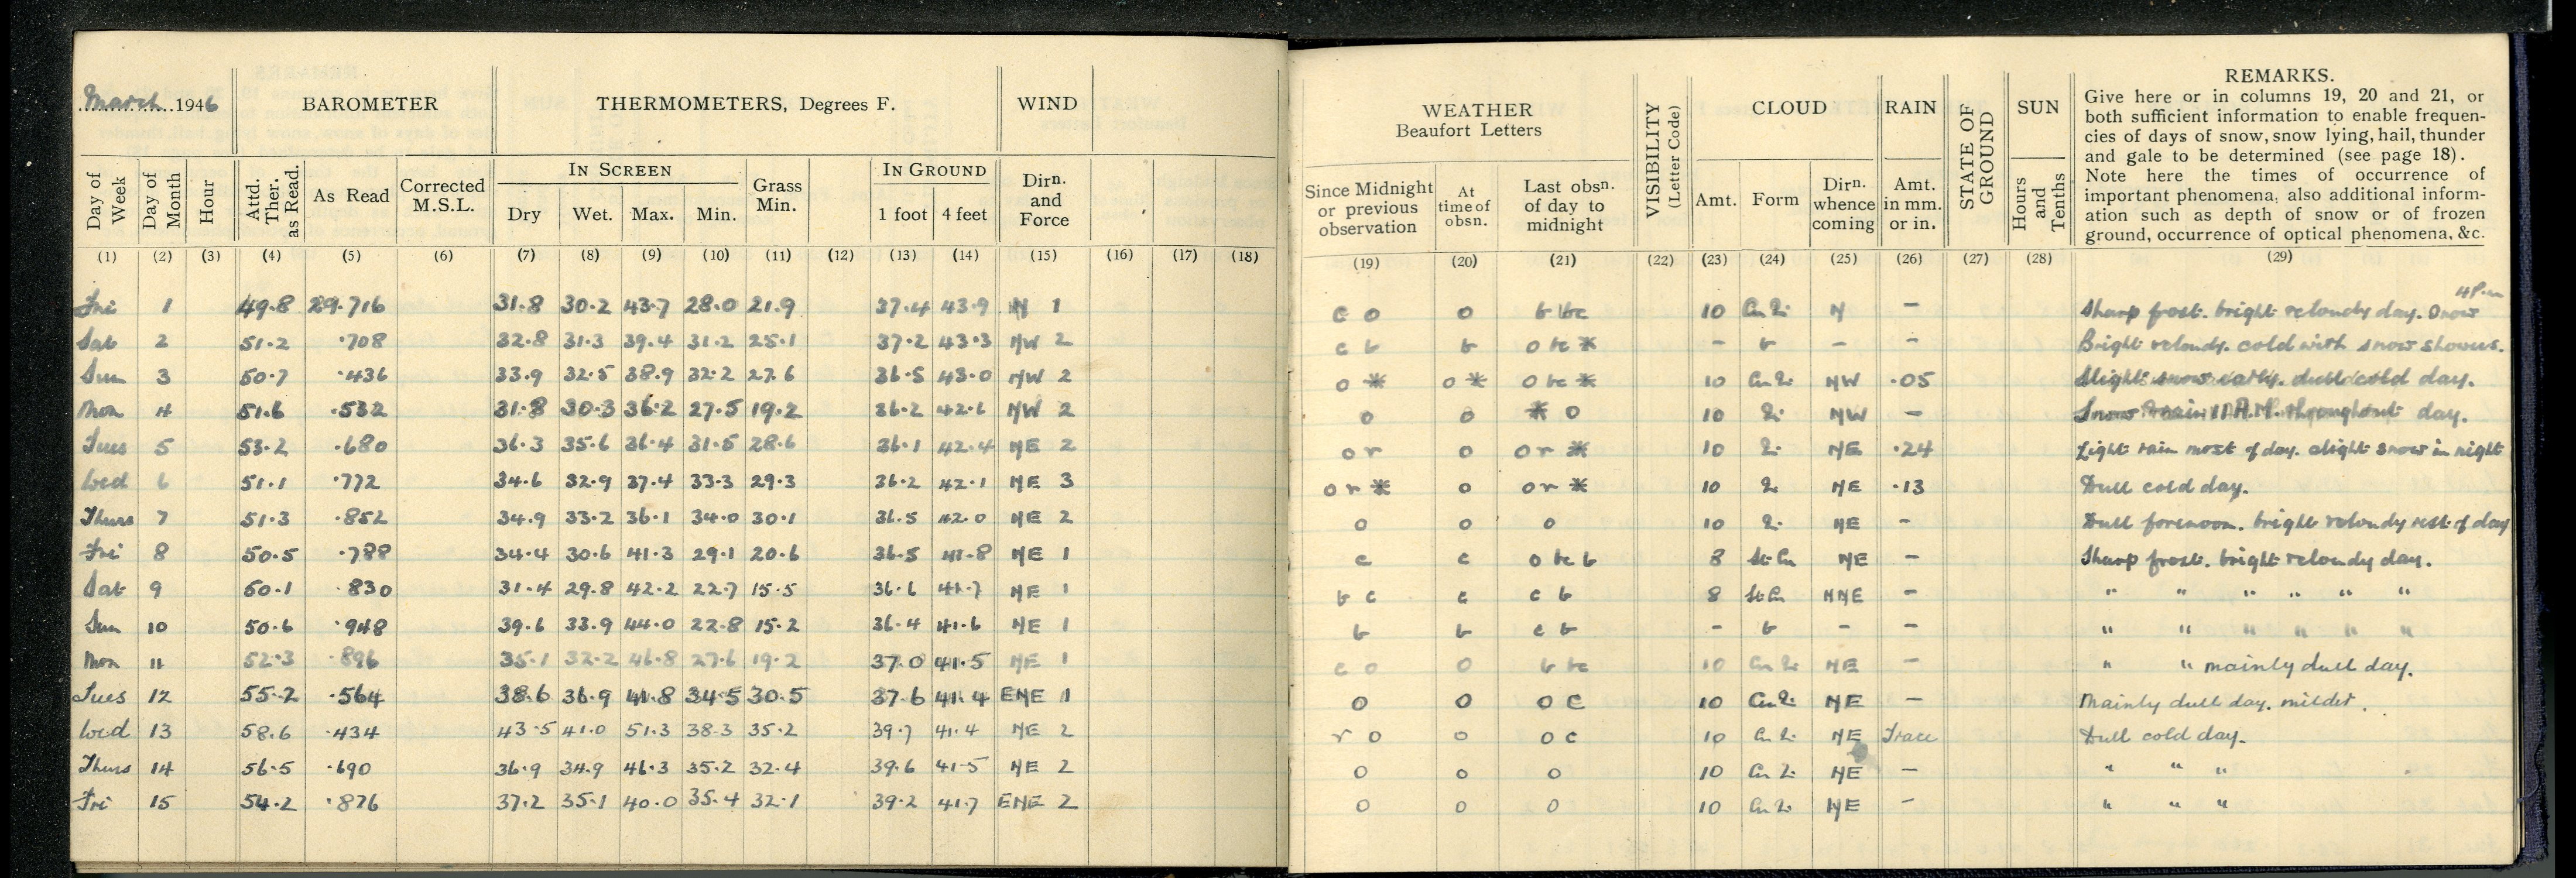 March 1946 BAROMETER THERMOMETERS, Degrees F. WIND
Day of Week Day of Month Hour Attd. Ther. as Read. As Read Corrected M.S.L. IN SCREEN Dry Wet. Max. Min. Grass Min. IN GROUND 1 foot 4 feet Dirn. and Force
(1) (2) (3) (4) (5) (6) (7) (8) (9) (10) (11) (12) (13) (14) (15) (16) (17) (18)
Fri 1 49.8 29.716 31.8 30.2 43.7 28.0 21.9 37.4 43.9 N 1
Sat 2 51.2 .708 32.8 31.3 39.4 31.2 25.1 37.2 43.3 NW 2
Sun 3 50.7 .436 33.9 32.5 38.9 32.2 27.6 36.5 43.0 NW 2
Mon 4 51.6 .532 31.8 30.3 36.2 27.5 19.2 36.2 42.6 NW 2
Tues 5 53.2 .680 36.3 35.6 36.4 31.5 28.6 36.1 42.4 NE 2
Wed 6 51.1 .772 34.6 32.9 37.4 33.3 29.3 36.2 42.1 NE 3
Thurs 7 51.3 .852 34.9 33.2 36.1 34.0 30.1 36.5 42.0 NE 2
Fri 8 50.5 .788 34.4 30.6 41.3 29.1 20.6 36.5 41.8 NE 1
Sat 9 50.1 .830 31.4 29.8 42.2 22.7 15.5 36.6 41.7 NE 1
Sun 10 50.6 .948 39.6 33.9 44.0 22.8 15.2 36.4 41.6 NE 1
Mon 11 52.3 .896 35.1 32.2 46.8 27.6 19.2 37.0 41.5 NE 1
Tues 12 55.2 .564 38.6 36.9 41.8 34.5 30.5 37.6 41.4 ENE 1
Wed 13 58.6 .434 43.5 41.0 51.3 38.3 35.2 39.7 41.4 NE 2
Thurs 14 56.5 .690 36.9 34.9 46.3 35.2 32.4 39.6 41.5 NE 2
Fri 15 54.2 .826 37.2 35.1 40.0 35.4 32.1 39.2 41.7 ENE 2
WEATHER Beaufort Letters VISIBILITY (Letter Code) CLOUD RAIN STATE OF GROUND SUN
Since Midnight or previous observation At time of obsn. Last obsn. of day to midnight Amt. Form Dirn. whence coming Amt. in mm. or in. Hours and Tenths
REMARKS.
Give here or in columns 19, 20 and 21, or
both sufficient information to enable frequen-
cies of days of snow, snow lying, hail, thunder
and gale to be determined (see page 18).
Note here the times of occurrence of
important phenomena, also additional inform-
ation such as depth of snow or of frozen
ground, occurrence of optical phenomena, &c.
(19) (20) (21) (22) (23) (24) (25) (26) (27) (28) (29)
4 P.m
c o o b bc 10 N – Sharp frost. bright & cloudy day. Snow
c b b o bc * – b – – Bright & cloudy. cold with snow showers.
o * o * o bc * 10 NW .05 Slight snow early. dull cold day.
o o * o 10 NW – Snow 11 A.M. throughout day.
o r o o r * 10 NE .24 Light rain most of day. slight snow in night
o r * o o r * 10 NE .13 Dull cold day.
o o o 10 NE – Dull forenoon. bright & cloudy rest of day
c c o bc b 8 St Cu NE – Sharp frost. bright & cloudy day.
b c c c b 8 St Cu NNE – " " " " " "
b b c b – b – – " " " " " "
c o o b bc 10 NE – " " mainly dull day.
o o o c 10 NE – Mainly dull day. milder.
r o o o c 10 NE Trace Dull cold day.
o o o 10 NE – " " "
o o o 10 NE – " " "